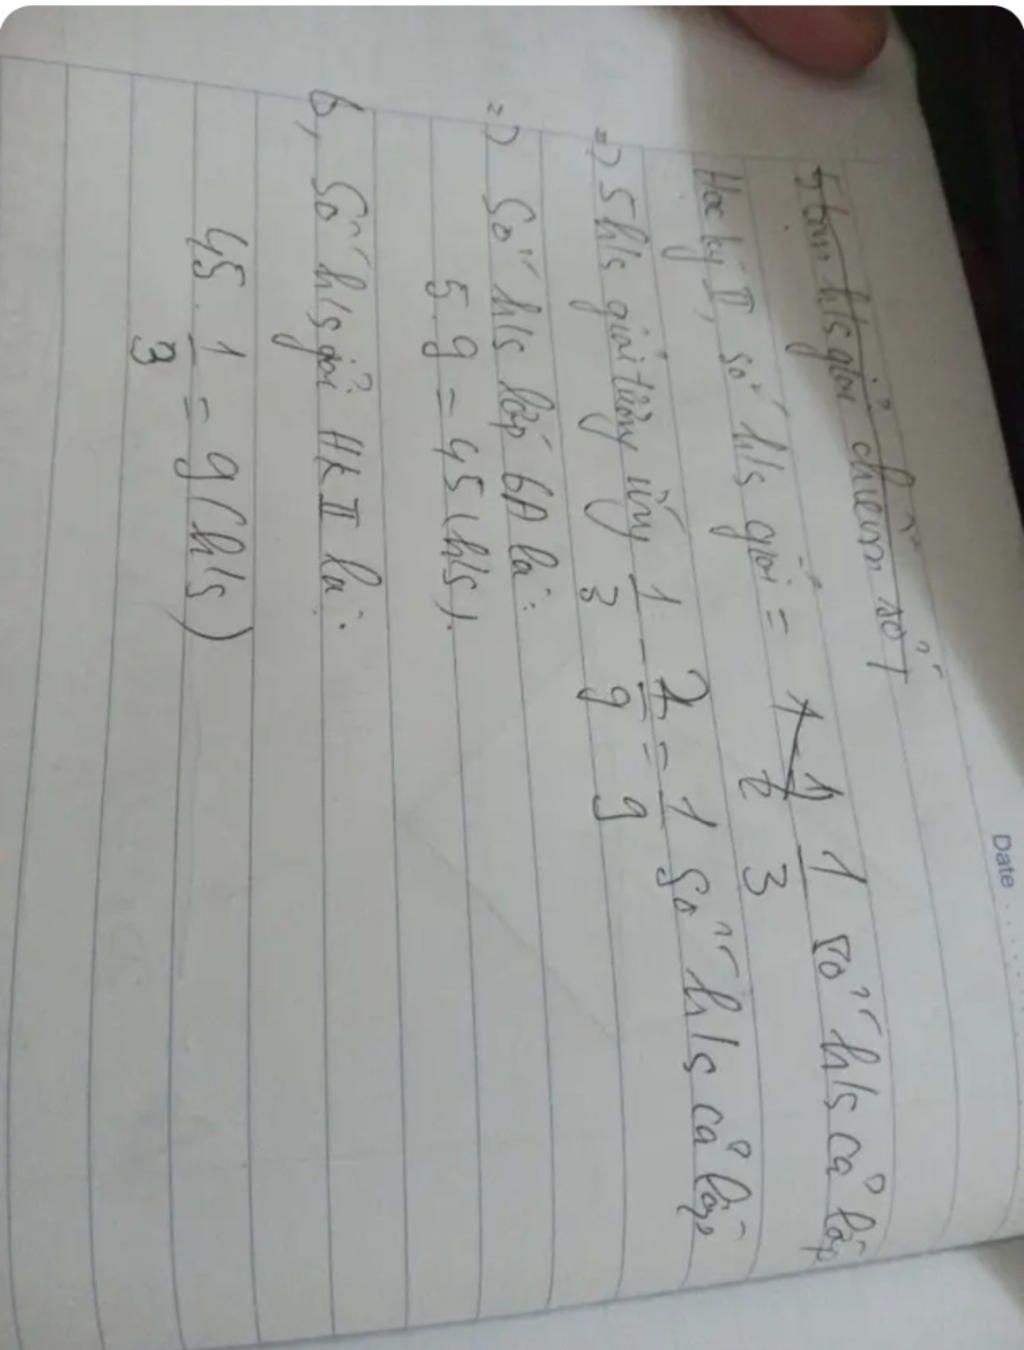 Date
Học kỳ II, số h/s giỏi = 1/3 số h/s cả lớp
=) 5 h/s giỏi tương ứng 1/3 - 2/9 = 1/9 số h/s cả lớp
=) Số h/s lớp 6A là:
5.9 = 45 (h/s).
b, Số h/s giỏi HK II là:
45. 1/3 = 9 (h/s)